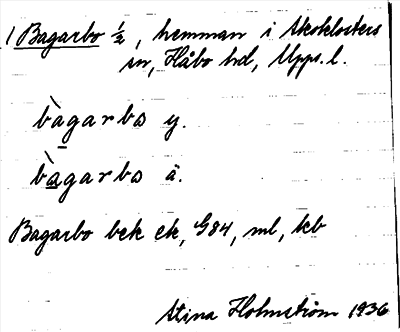 1 Bagarbo ½, hemman i Skoklosters
sn, Håbo hd, Upps. l.
bàgarbo y.
bàgarbo ä.
Bagarbo bek ek, G84, ml, kb
Stina Holmström 1936